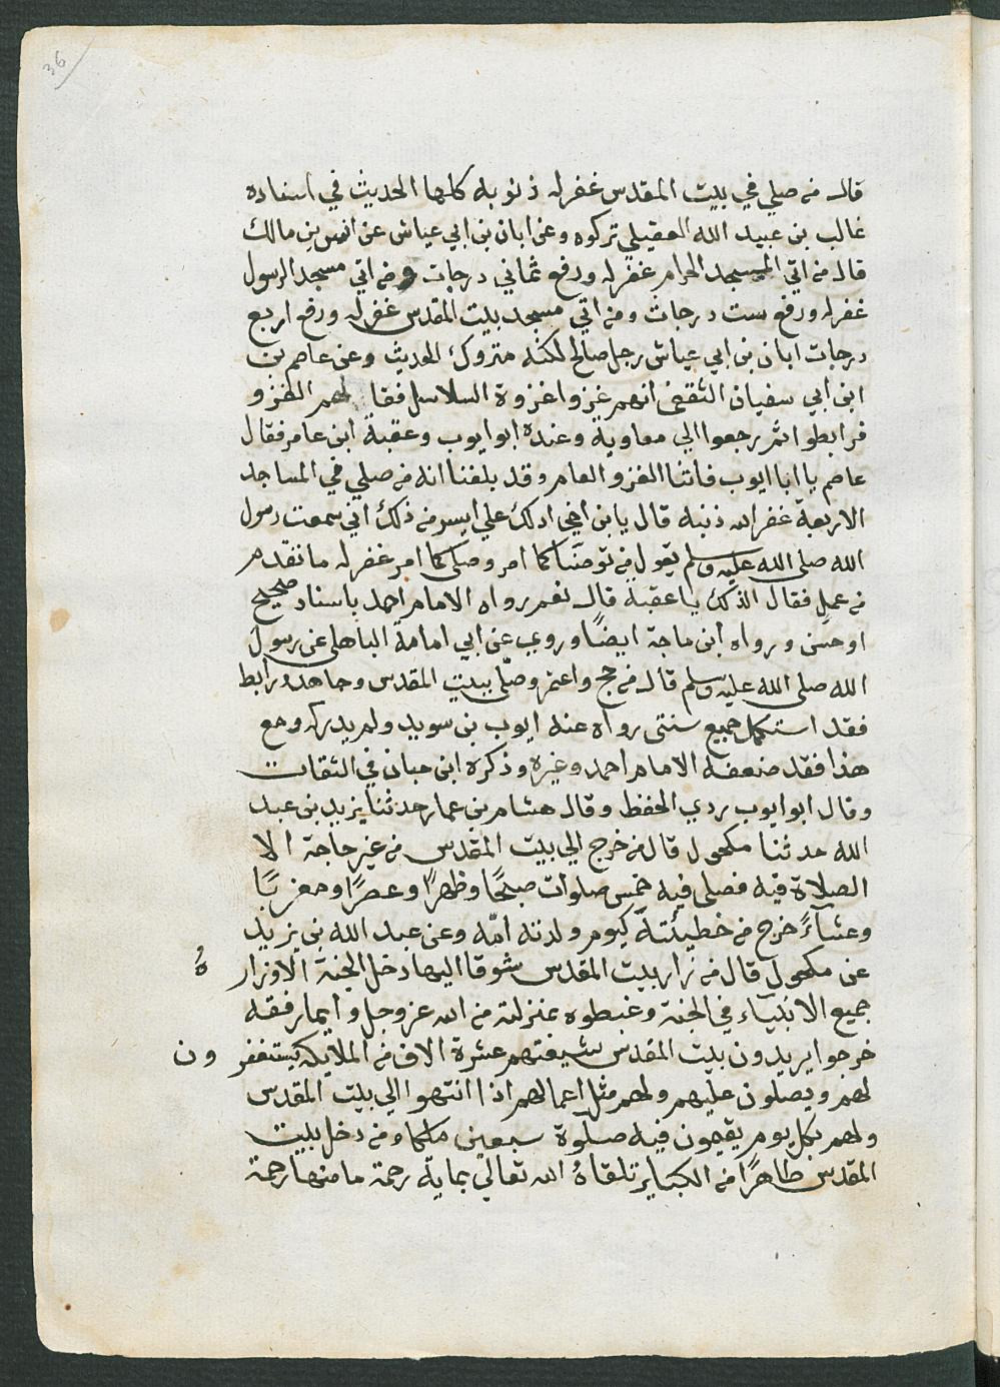 36
قال من صلي في بيت المقدس غفر له ذنوبه كلها الحديث في اسناده
غالب بن عبيد الله العقيلي تركوه وعن ابان بن ابي عياش عن انس بن مالك
قال من اتي المسجد الحرام غفر له ورفع ثماني درجات ومن اتي مسجد الرسول
غفر له ورفع ست درجات ومن اتي مسجد بيت المقدس غفر له ورفع اربع
درجات ابان بن ابي عياش رجل صالح لكنه متروك الحديث وعن عاصم بن
ابن ابي سفيان الثقفي انهم غزوا غزوة السلاسل ففا لهم الغزو
فرابطوا ثم رجعوا الي معاوية وعنده ابو ايوب وعقبة ابن عامر فقال
عاصم يا ابا ايوب فاتنا الغزو العام وقد بلغنا انه من صلي في المساجد
الاربعة غفر الله ذنبه قال يا بن اخي ادلك علي ايسر من ذلك اني سمعت رسول
الله صلى الله عليه وسلم يقول من توضا كما امر وصلى كما امر غفر له ما تقدم
من عمل فقال اكذلك يا عقبة قال نعم رواه الامام احمد باسناد صحيح
او حسن ورواه ابن ماجة ايضًا وروي عن ابي امامة الباهلي عن رسول
الله صلى الله عليه وسلم قال من حج واعتمر وصلى ببيت المقدس وجاهد ورابط
فقد استكمل جميع سنتى رواه عنه ايوب بن سويد ولم يدركه ومع
هذا فقد ضعفه الامام احمد وغيره وذكره ابن حبان في الثقات
وقال ابو ايوب ردي الحفظ وقال هشام بن عمار حدثنا يزيد بن عبد
الله حدثنا مكحول قال من خرج الي بيت المقدس من غير حاجة الا
الصلاة فيه فصلى فيه خمس صلوات صبحًا وظهرًا وعصرًا ومغربًا
وعشآءً خرج من خطيئته كيوم ولدته امه وعن عبد الله بن يزيد
عن مكحول قال من زار بيت المقدس شوقا اليها دخل الجنة الا وزاره
جميع الانبيآء في الجنة وغبطوه بمنزلته من الله عز وجل وايما رفقه
خرجوا يريدون بيت المقدس شيعتهم عشرة الاف من الملايكة يستغفرون
لهم ويصلون عليهم ولهم مثل اعمالهم اذا انتهوا الي بيت المقدس
ولهم بكل يوم يقيمون فيه صلوة سبعين ملكا ومن دخل بيت
المقدس طاهرًا من الكباير تلقاهُ الله تعالي بماية رحمة ما منها رحمة